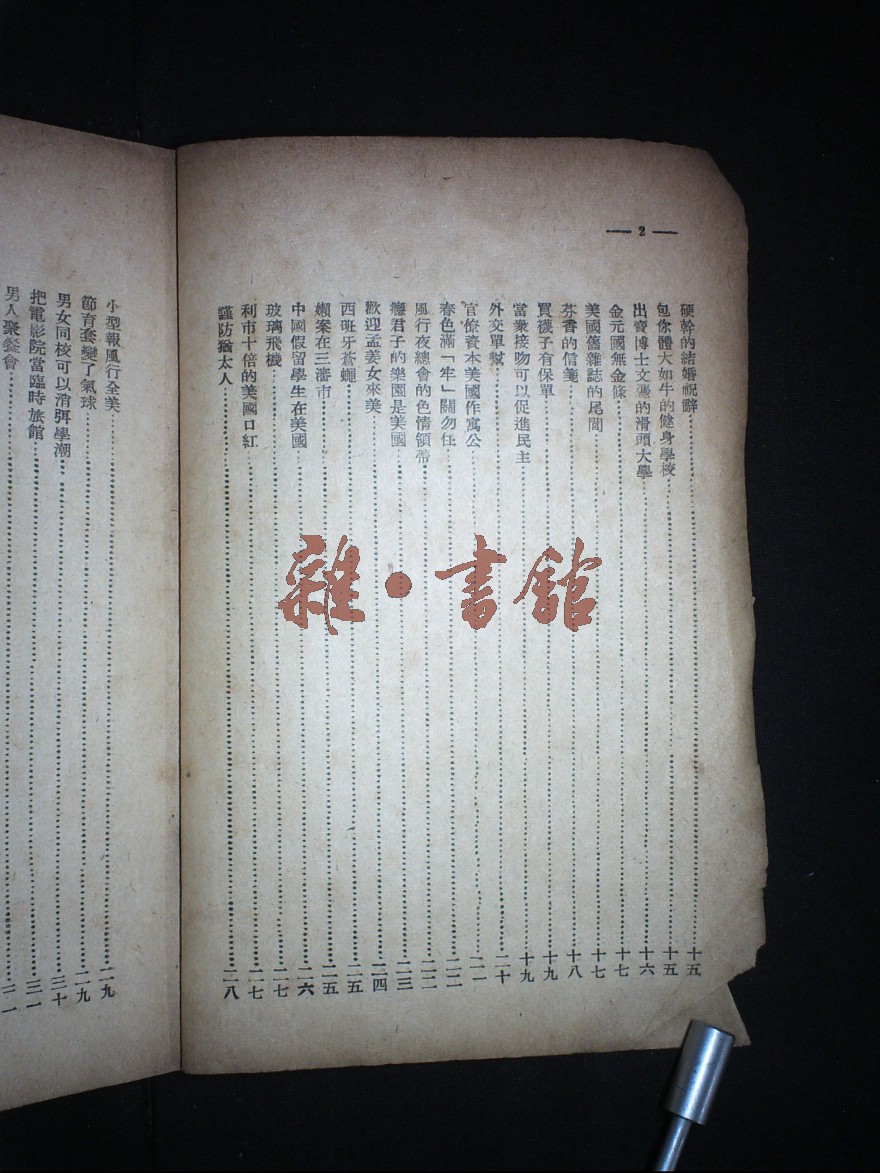 — 2 —
硬幹的結婚祝辭……十五
包你體大如牛的健身學校……十五
出賣博士文憑的滑頭大學……十六
金元國無金條……十七
美國舊雜誌的尾閭……十七
芬香的信箋……十八
買襪子有保單……十九
當衆接吻可以促進民主……十九
外交單幫……二十
官僚資本美國作寓公……二一
春色滿「牢」關勿住……二二
風行夜總會的色情領帶……二二
癮君子的樂園是美國……二三
歡迎孟姜女來美……二四
西班牙蒼蠅……二五
嫩案在三藩市……二五
中國假留學生在美國……二六
玻璃飛機……二七
利市十倍的美國口紅……二七
謹防猶太人……二八
小型報風行全美……二九
節育套變了氣球……二九
男女同校可以消弭學潮……三十
把電影院當臨時旅館……三一
男人聚餐會
雜·書館